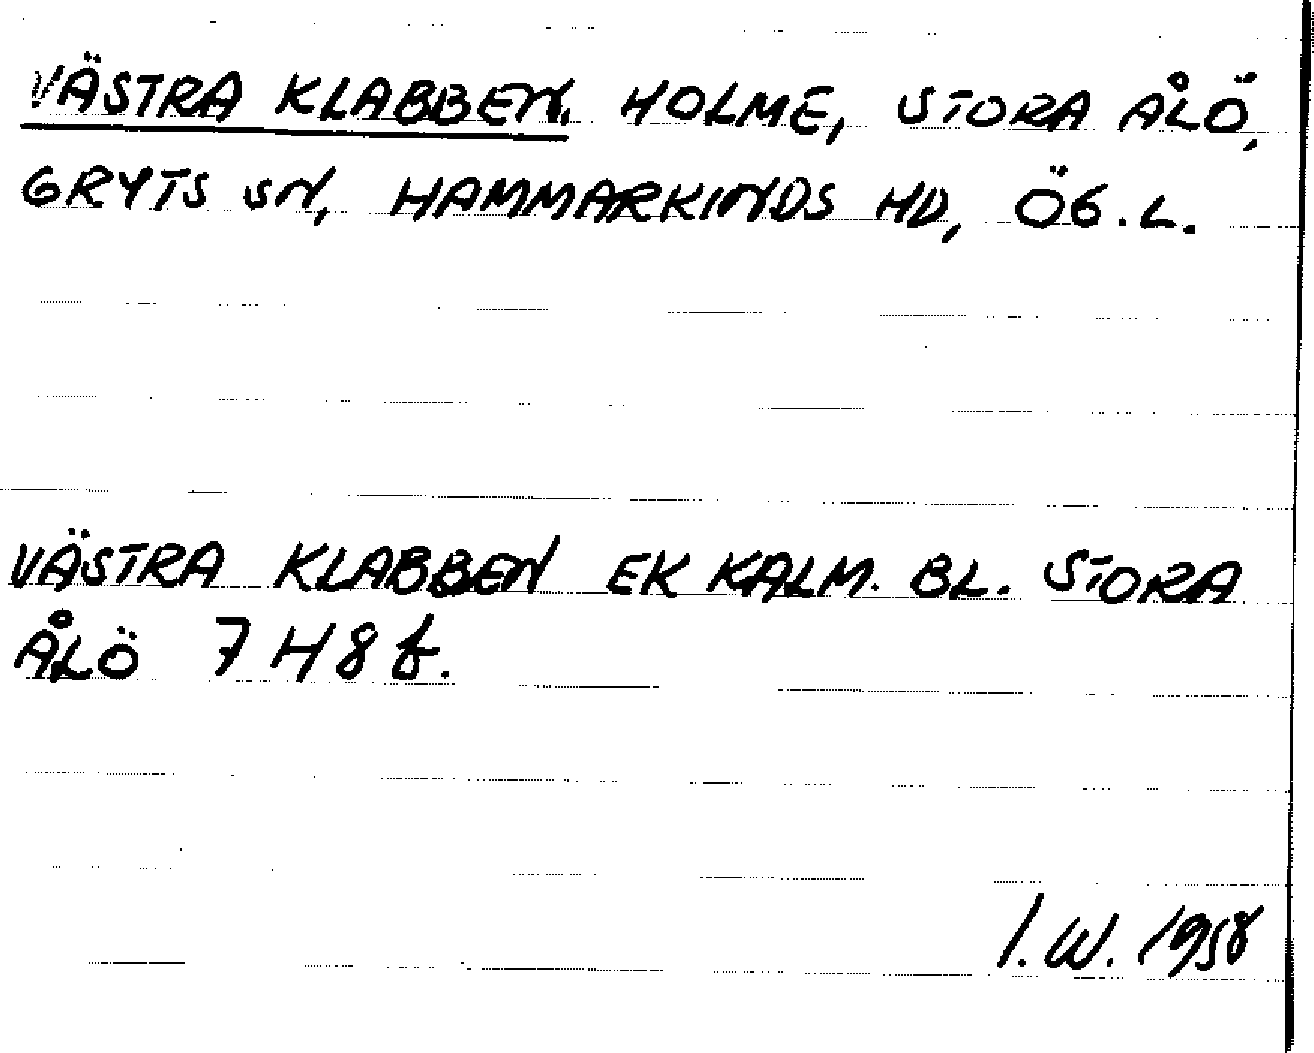 VÄSTRA KLABBEN, HOLME, STORA ÅLÖ,
GRYTS SN, HAMMARKINDS HD, ÖG.L.
VÄSTRA KLABBEN EK KALM. BL. STORA
ÅLÖ 7H8f.
I.W. 1958